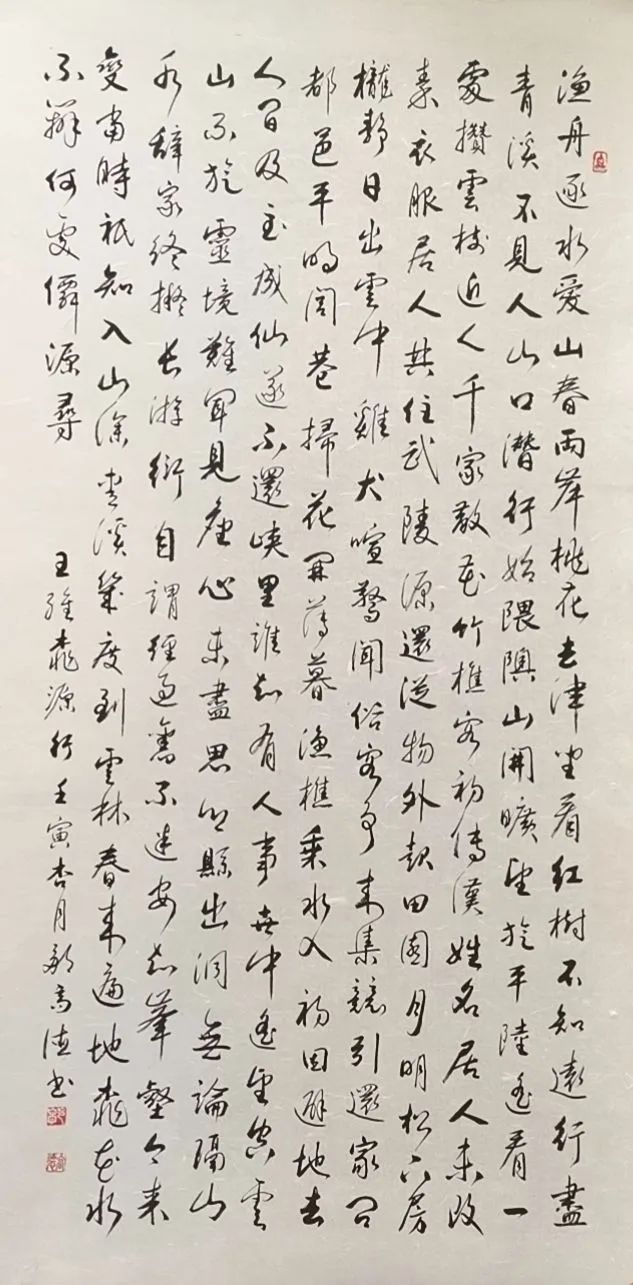 漁舟逐水爱山春兩岸桃花去津坐看红樹不知遠行盡
青溪不見人山口潛行始隈隩山開曠望旋平陸遙看一
處攢雲樹近入千家散花竹樵客初傳漢姓名居人未改
秦衣服居人共住武陵源還從物外起田園月明松下房
櫳靜日出雲中雞犬喧驚聞俗客爭來集競引還家問
都邑平明閭巷掃花開薄暮漁樵乘水入初因避地去
人間及至成仙遂不還峽里誰知有人事世中遙望空雲
山不疑靈境難聞見塵心未盡思鄉縣出洞無論隔山
水辭家終擬長游衍自謂經過舊不迷安知峯壑今來
變當時祇知入山深青溪幾度到雲林春來遍地桃花水
不辨何處僊源尋
王維桃源行壬寅杏月高德书